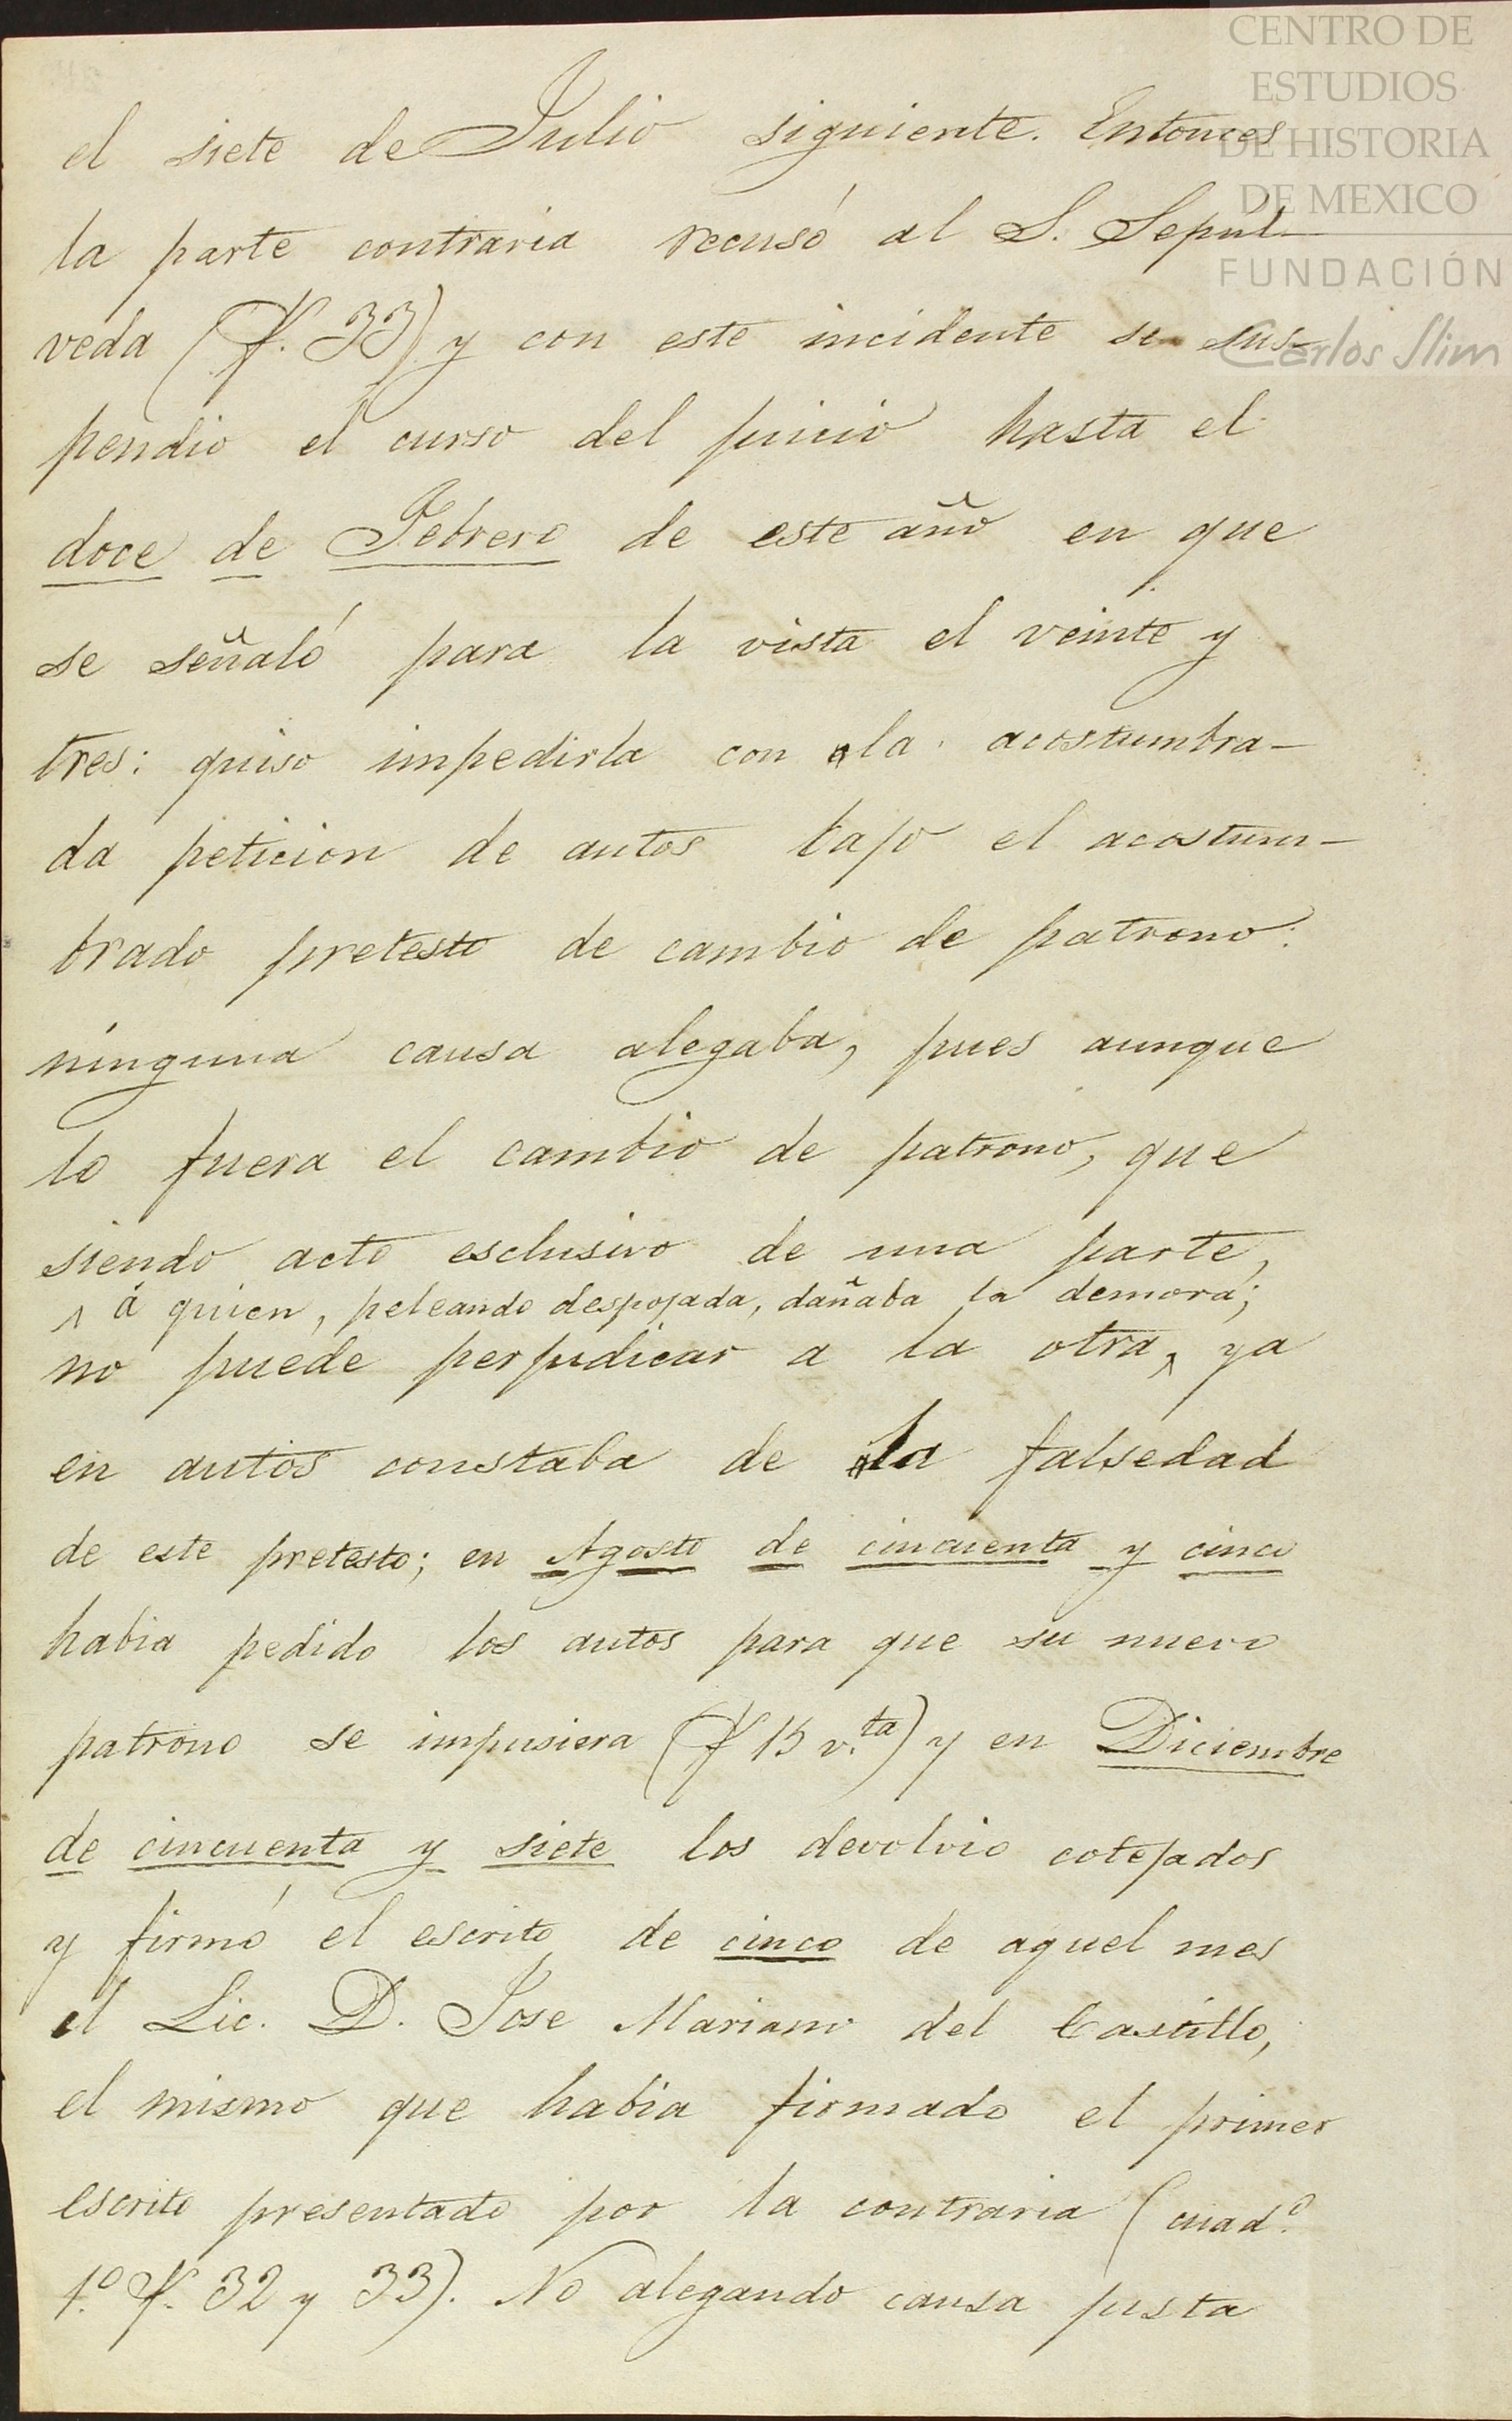 CENTRO DE
ESTUDIOS
DE HISTORIA
DE MEXICO
FUNDACIÓN
Carlos Slim
el siete de Julio siguiente. Entonces
la parte contraria recusó al S. Sepul-
veda (f. 33) y con este incidente se sus-
pendio el curso del juicio hasta el
doce de Febrero de este año en que
se señaló para la vista el veinte y
tres: quiso impedirla con la acostumbra-
da peticion de autos bajo el acostum-
brado pretesto de cambio de patrono:
ninguna causa alegaba, pues aunque
lo fuera el cambio de patrono, que
siendo acto esclusivo de una parte,
^ á quien, peleando despojada, dañaba la demora;
no puede perjudicar a la otra^ ya
en autos constaba de la falsedad
de este pretesto; en Agosto de cincuenta y cinco
habia pedido los autos para que su nuevo
patrono se impusiera (f 15 v.ta) y en Diciembre
de cincuenta y siete los devolvio cotejados
y firmó el escrito de cinco de aquel mes
el Lic. D. Jose Mariano del Castillo,
el mismo que habia firmado el primer
escrito presentado por la contraria (cuad.º
1.º f. 32 y 33). No alegando causa justa